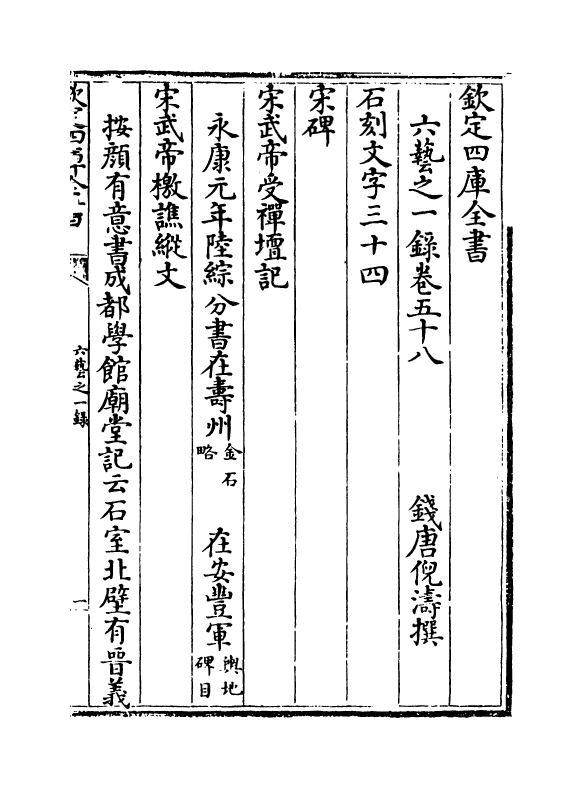 欽定四庫全書
六藝之一錄卷五十八　錢唐倪濤撰
石刻文字三十四
宋碑
宋武帝受禪壇記
永康元年陸綜分書在壽州金石略　在安豐軍輿地碑目
宋武帝檄譙縱文
按顔有意書成都學館廟堂記云石室北壁有晉義
六藝之一錄
一